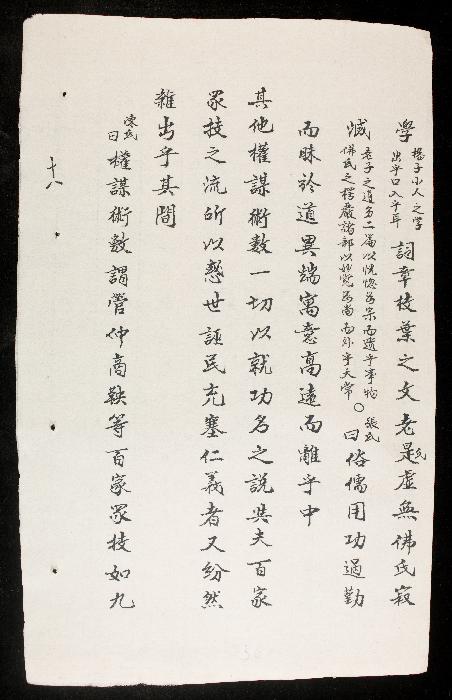 學楊子小人之學
出乎口入乎耳
詞章枝葉之文老是氏虛無佛氏寂
滅老子之道二篇以恍惚為宗而遺乎事物
佛氏之楞嚴諸部以妙覺為尚而外乎天常
○張氏曰俗儒用功過勤
而昧於道異端寓意高遠而離乎中
其他權謀術數一切以就功名之說與夫百家
眾技之流所以惑世誣民充塞仁義者又紛然
雜出乎其間
陳氏曰權謀術數謂管仲商鞅等百家眾技如九
十八